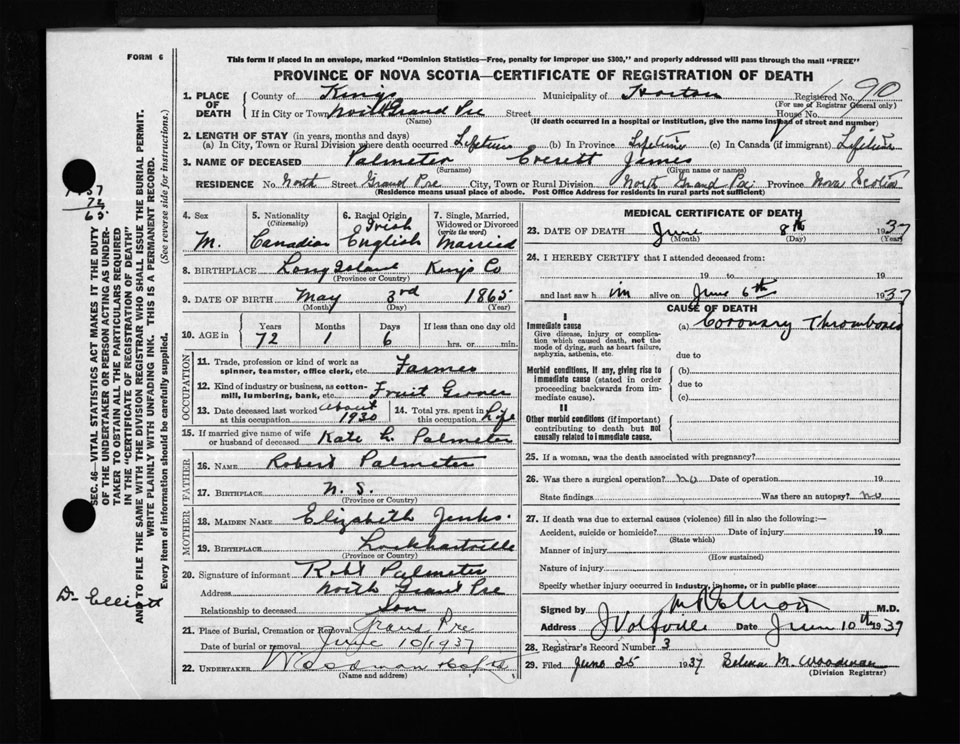 FORM 6
This form if placed in an envelope, marked "Dominion Statistics—Free, penalty for improper use $300," and properly addressed will pass through the mail "FREE"
PROVINCE OF NOVA SCOTIA—CERTIFICATE OF REGISTRATION OF DEATH
1. PLACE OF DEATH
County of Kings Municipality of Horton Registered No. 910
(For use of Registrar General only)
If in City or Town North Grand Pre Street House No.
(Name) (If death occurred in a hospital or institution, give the name instead of street and number)
2. LENGTH OF STAY (in years, months and days)
(a) In City, Town or Rural Division where death occurred Lifetime (b) In Province Lifetime (c) In Canada (if immigrant) Lifetime
3. NAME OF DECEASED Palmeter Everett James
(Surname) (Given name or names)
RESIDENCE No. North Street Grand Pre City, Town or Rural Division North Grand Pre Province Nova Scotia
(Residence means usual place of abode. Post Office Address for residents in rural parts not sufficient)
4. Sex M.
5. Nationality (Citizenship) Canadian
6. Racial Origin Irish English
7. Single, Married, Widowed or Divorced (write the word) Married
8. BIRTHPLACE Long Island Kings Co
(Province or Country)
9. DATE OF BIRTH May 3rd 1865
(Month) (Day) (Year)
10. AGE in Years Months Days If less than one day old
72 1 6 hrs. or min.
OCCUPATION
11. Trade, profession or kind of work as spinner, teamster, office clerk, etc. Farmer
12. Kind of industry or business, as cotton-mill, lumbering, bank, etc. Fruit Grower
13. Date deceased last worked at this occupation About 1930
14. Total yrs. spent in this occupation Life
15. If married give name of wife or husband of deceased Kate L. Palmeter
FATHER
16. NAME Robert Palmeter
17. BIRTHPLACE N. S.
(Province or Country)
MOTHER
18. MAIDEN NAME Elizabeth Jenks.
19. BIRTHPLACE Lockhartville
(Province or Country)
20. Signature of informant Robt Palmeter
Address North Grand Pre
Relationship to deceased Son
21. Place of Burial, Cremation or Removal Grand Pre
Date of burial or removal June 10/1937
22. UNDERTAKER Woodman
(Name and address)
MEDICAL CERTIFICATE OF DEATH
23. DATE OF DEATH June 8th 1937
(Month) (Day) (Year)
24. I HEREBY CERTIFY that I attended deceased from:
19 to 19
and last saw him alive on June 6th 1937
CAUSE OF DEATH
I
Immediate cause
Give disease, injury or complication which caused death, not the mode of dying, such as heart failure, asphyxia, asthenia, etc.
(a) Coronary Thrombosis
due to
Morbid conditions, if any, giving rise to immediate cause (stated in order proceeding backwards from immediate cause).
(b)
due to
(c)
II
Other morbid conditions (if important) contributing to death but not causally related to immediate cause.
25. If a woman, was the death associated with pregnancy?
26. Was there a surgical operation? no Date of operation 19
State findings Was there an autopsy? no
27. If death was due to external causes (violence) fill in also the following:—
Accident, suicide or homicide? Date of injury 19
(State which)
Manner of injury
(How sustained)
Nature of injury
Specify whether injury occurred in industry, in home, or in public place
Signed by M.D.
Address Wolfville Date June 10th 1937
28. Registrar's Record Number 3
29. Filed June 25 1937 Selena M. Woodman
(Division Registrar)
SEC. 46—VITAL STATISTICS ACT MAKES IT THE DUTY
OF THE UNDERTAKER OR PERSON ACTING AS UNDER-
TAKER TO OBTAIN ALL THE PARTICULARS REQUIRED
IN THE "CERTIFICATE OF REGISTRATION OF DEATH"
AND TO FILE THE SAME WITH THE DIVISION REGISTRAR WHO SHALL ISSUE THE BURIAL PERMIT.
WRITE PLAINLY WITH UNFADING INK. THIS IS A PERMANENT RECORD.
Every item of information should be carefully supplied. (See reverse side for instructions.)
1937
72
65.
Dr Elliott